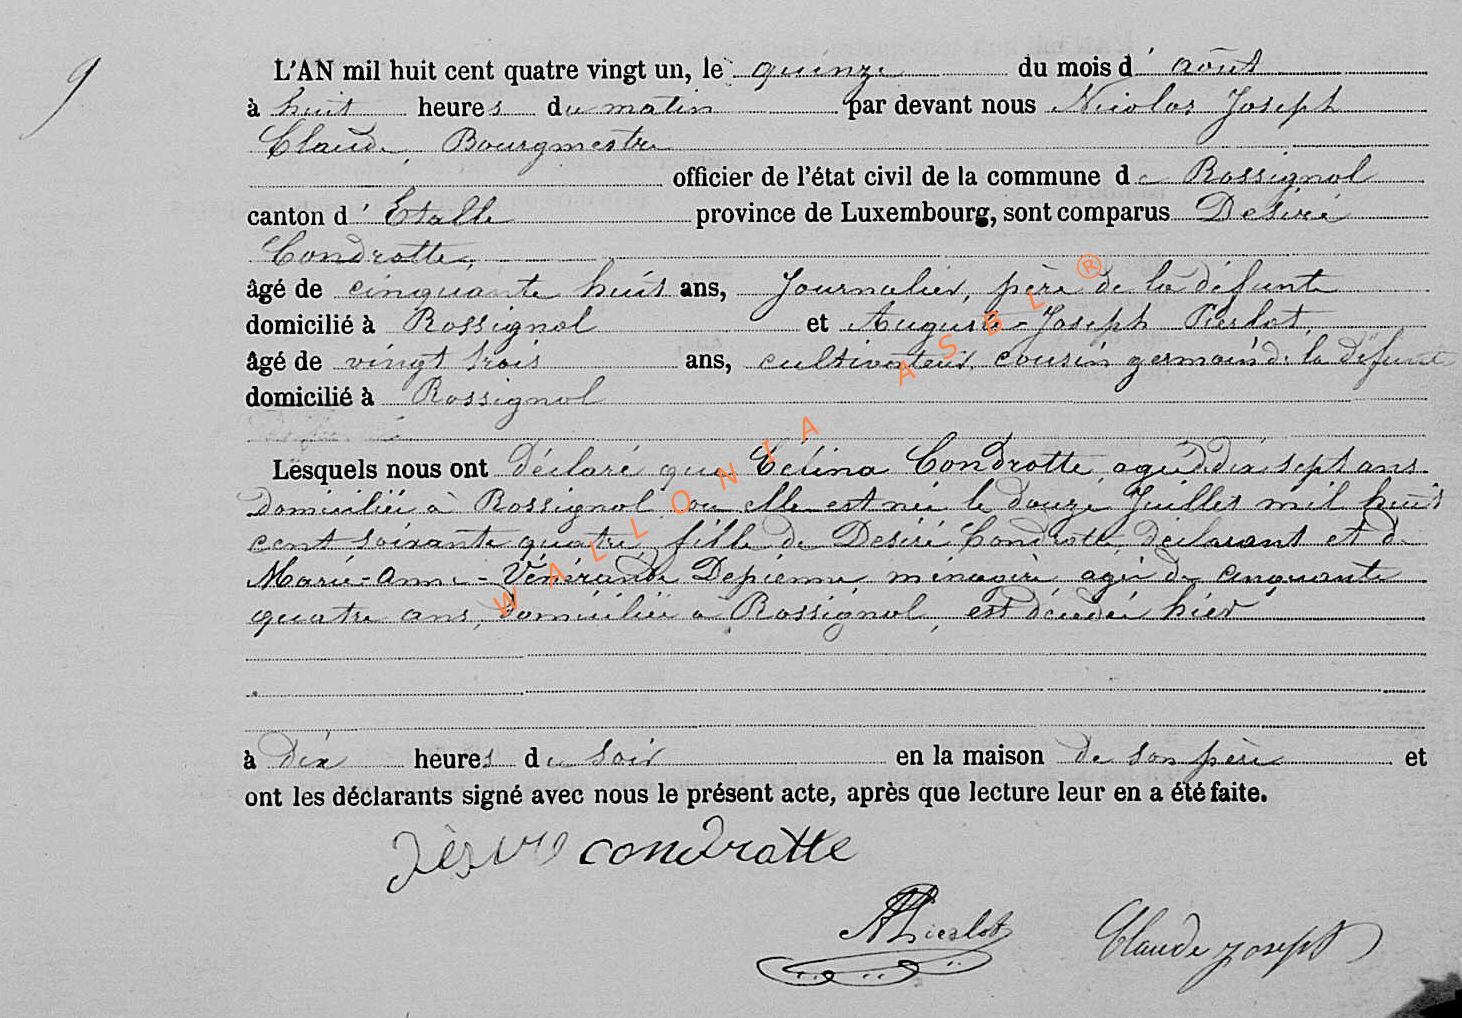 9
L'AN mil huit cent quatre vingt un, le quinze du mois d' août
à huit heures du matin par devant nous Nicolas Joseph
Claude, Bourgmestre
officier de l'état civil de la commune de Rossignol
canton d' Etalle province de Luxembourg, sont comparus Desiré
Condrotte,
âgé de cinquante huit ans, Journalier, père de la défunte
domicilié à Rossignol et Auguste-Joseph Pierlot,
âgé de vingt trois ans, cultivateur, cousin germain de la défunte
domicilié à Rossignol
Lesquels nous ont déclaré que Célina Condrotte, agée de dix sept ans
domiciliée à Rossignol où elle est née le douze Juillet mil huit
cent soixante quatre, fille de Desiré Condrotte, déclarant et de
Marie-Anne-Vénérande Depienne ménagère agée de cinquante
quatre ans, domiciliée à Rossignol, est décedée hier
à dix heures du soir en la maison de son père et
ont les déclarants signé avec nous le présent acte, après que lecture leur en a été faite.
condrotte
Pierlot Claude Joseph
WALLONIA ASBL ®